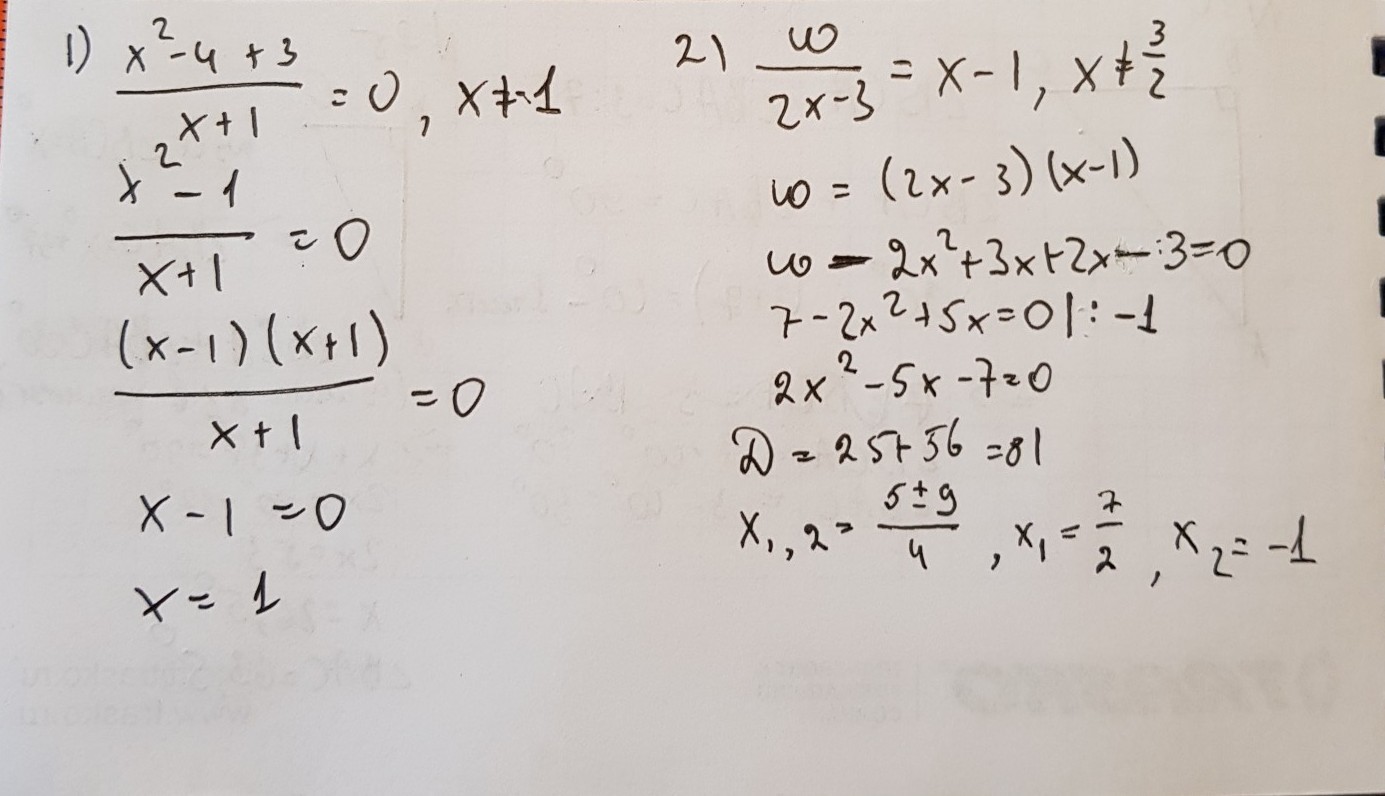 1) (x²-4+3)/(x+1) = 0, x≠-1
(x²-1)/(x+1) = 0
((x-1)(x+1))/(x+1) = 0
x-1=0
x=1
2) 10/(2x-3) = x-1, x≠3/2
10 = (2x-3)(x-1)
10-2x²+3x+2x-3=0
7-2x²+5x=0 |: -1
2x²-5x-7=0
D=25+56=81
x₁,₂=(5±9)/4, x₁=7/2, x₂=-1